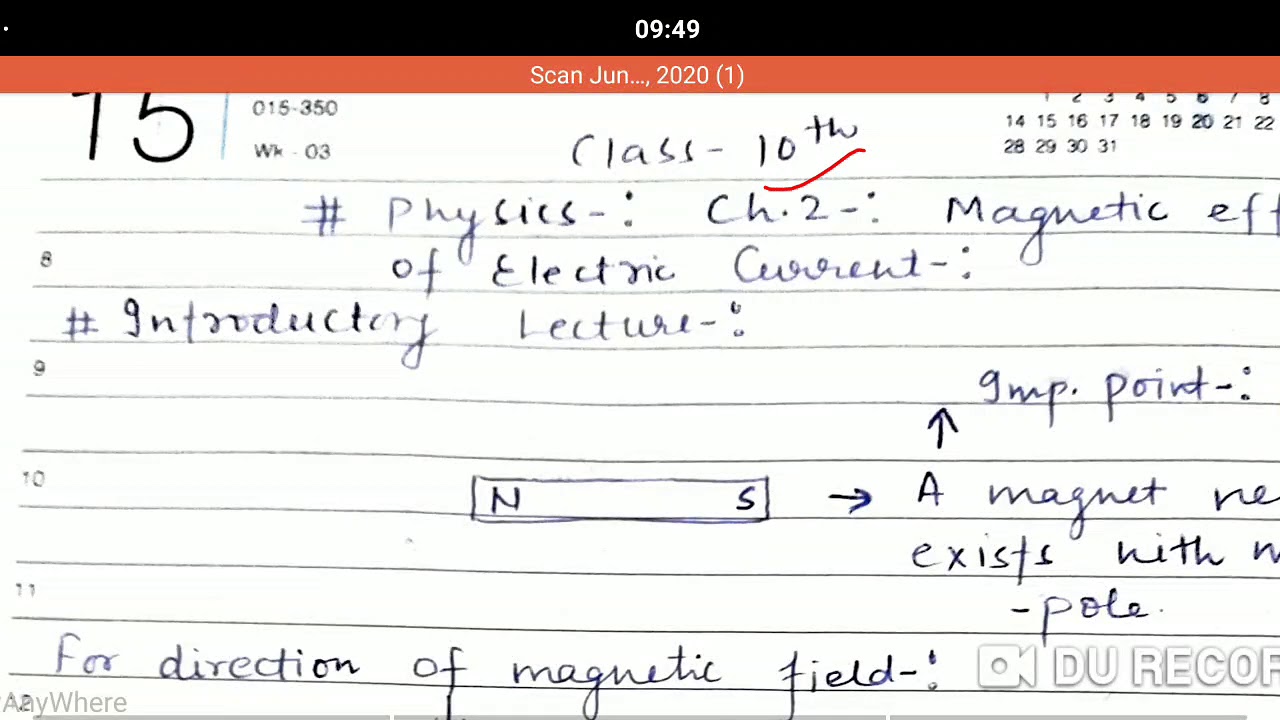 09:49
Scan Jun..., 2020 (1)
15
015-350
Wk - 03
1 2 3 4 5 6 7 8
14 15 16 17 18 19 20 21 22
28 29 30 31
Class- 10th
# Physics-: Ch.2-: Magnetic eff
8
of Electric Current-:
# Introductory Lecture-:
9
Imp. point-:
↑
10
N S → A magnet ne
exists with
11
-pole.
For direction of magnetic field-:
DU RECOR
12
AnyWhere